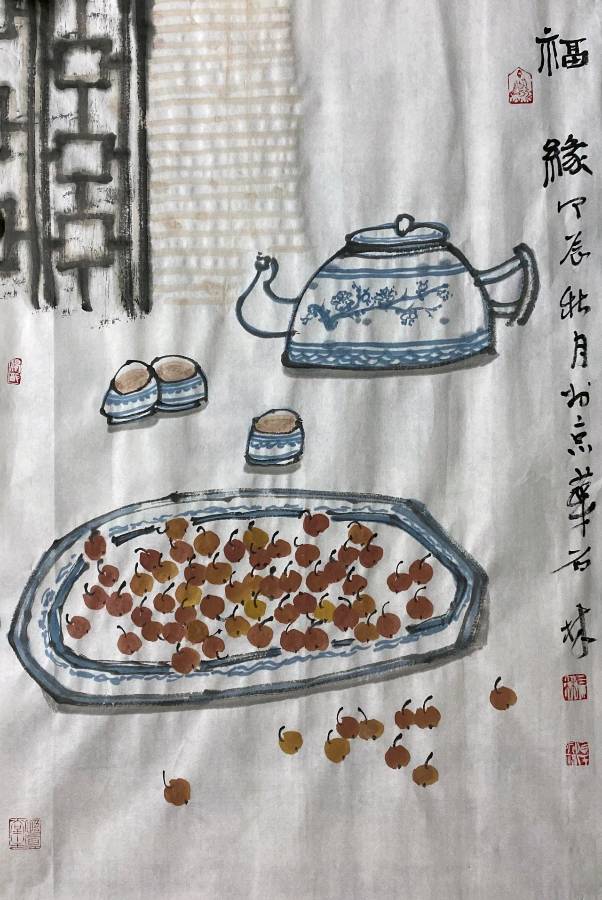 福缘甲辰秋月于京华石林